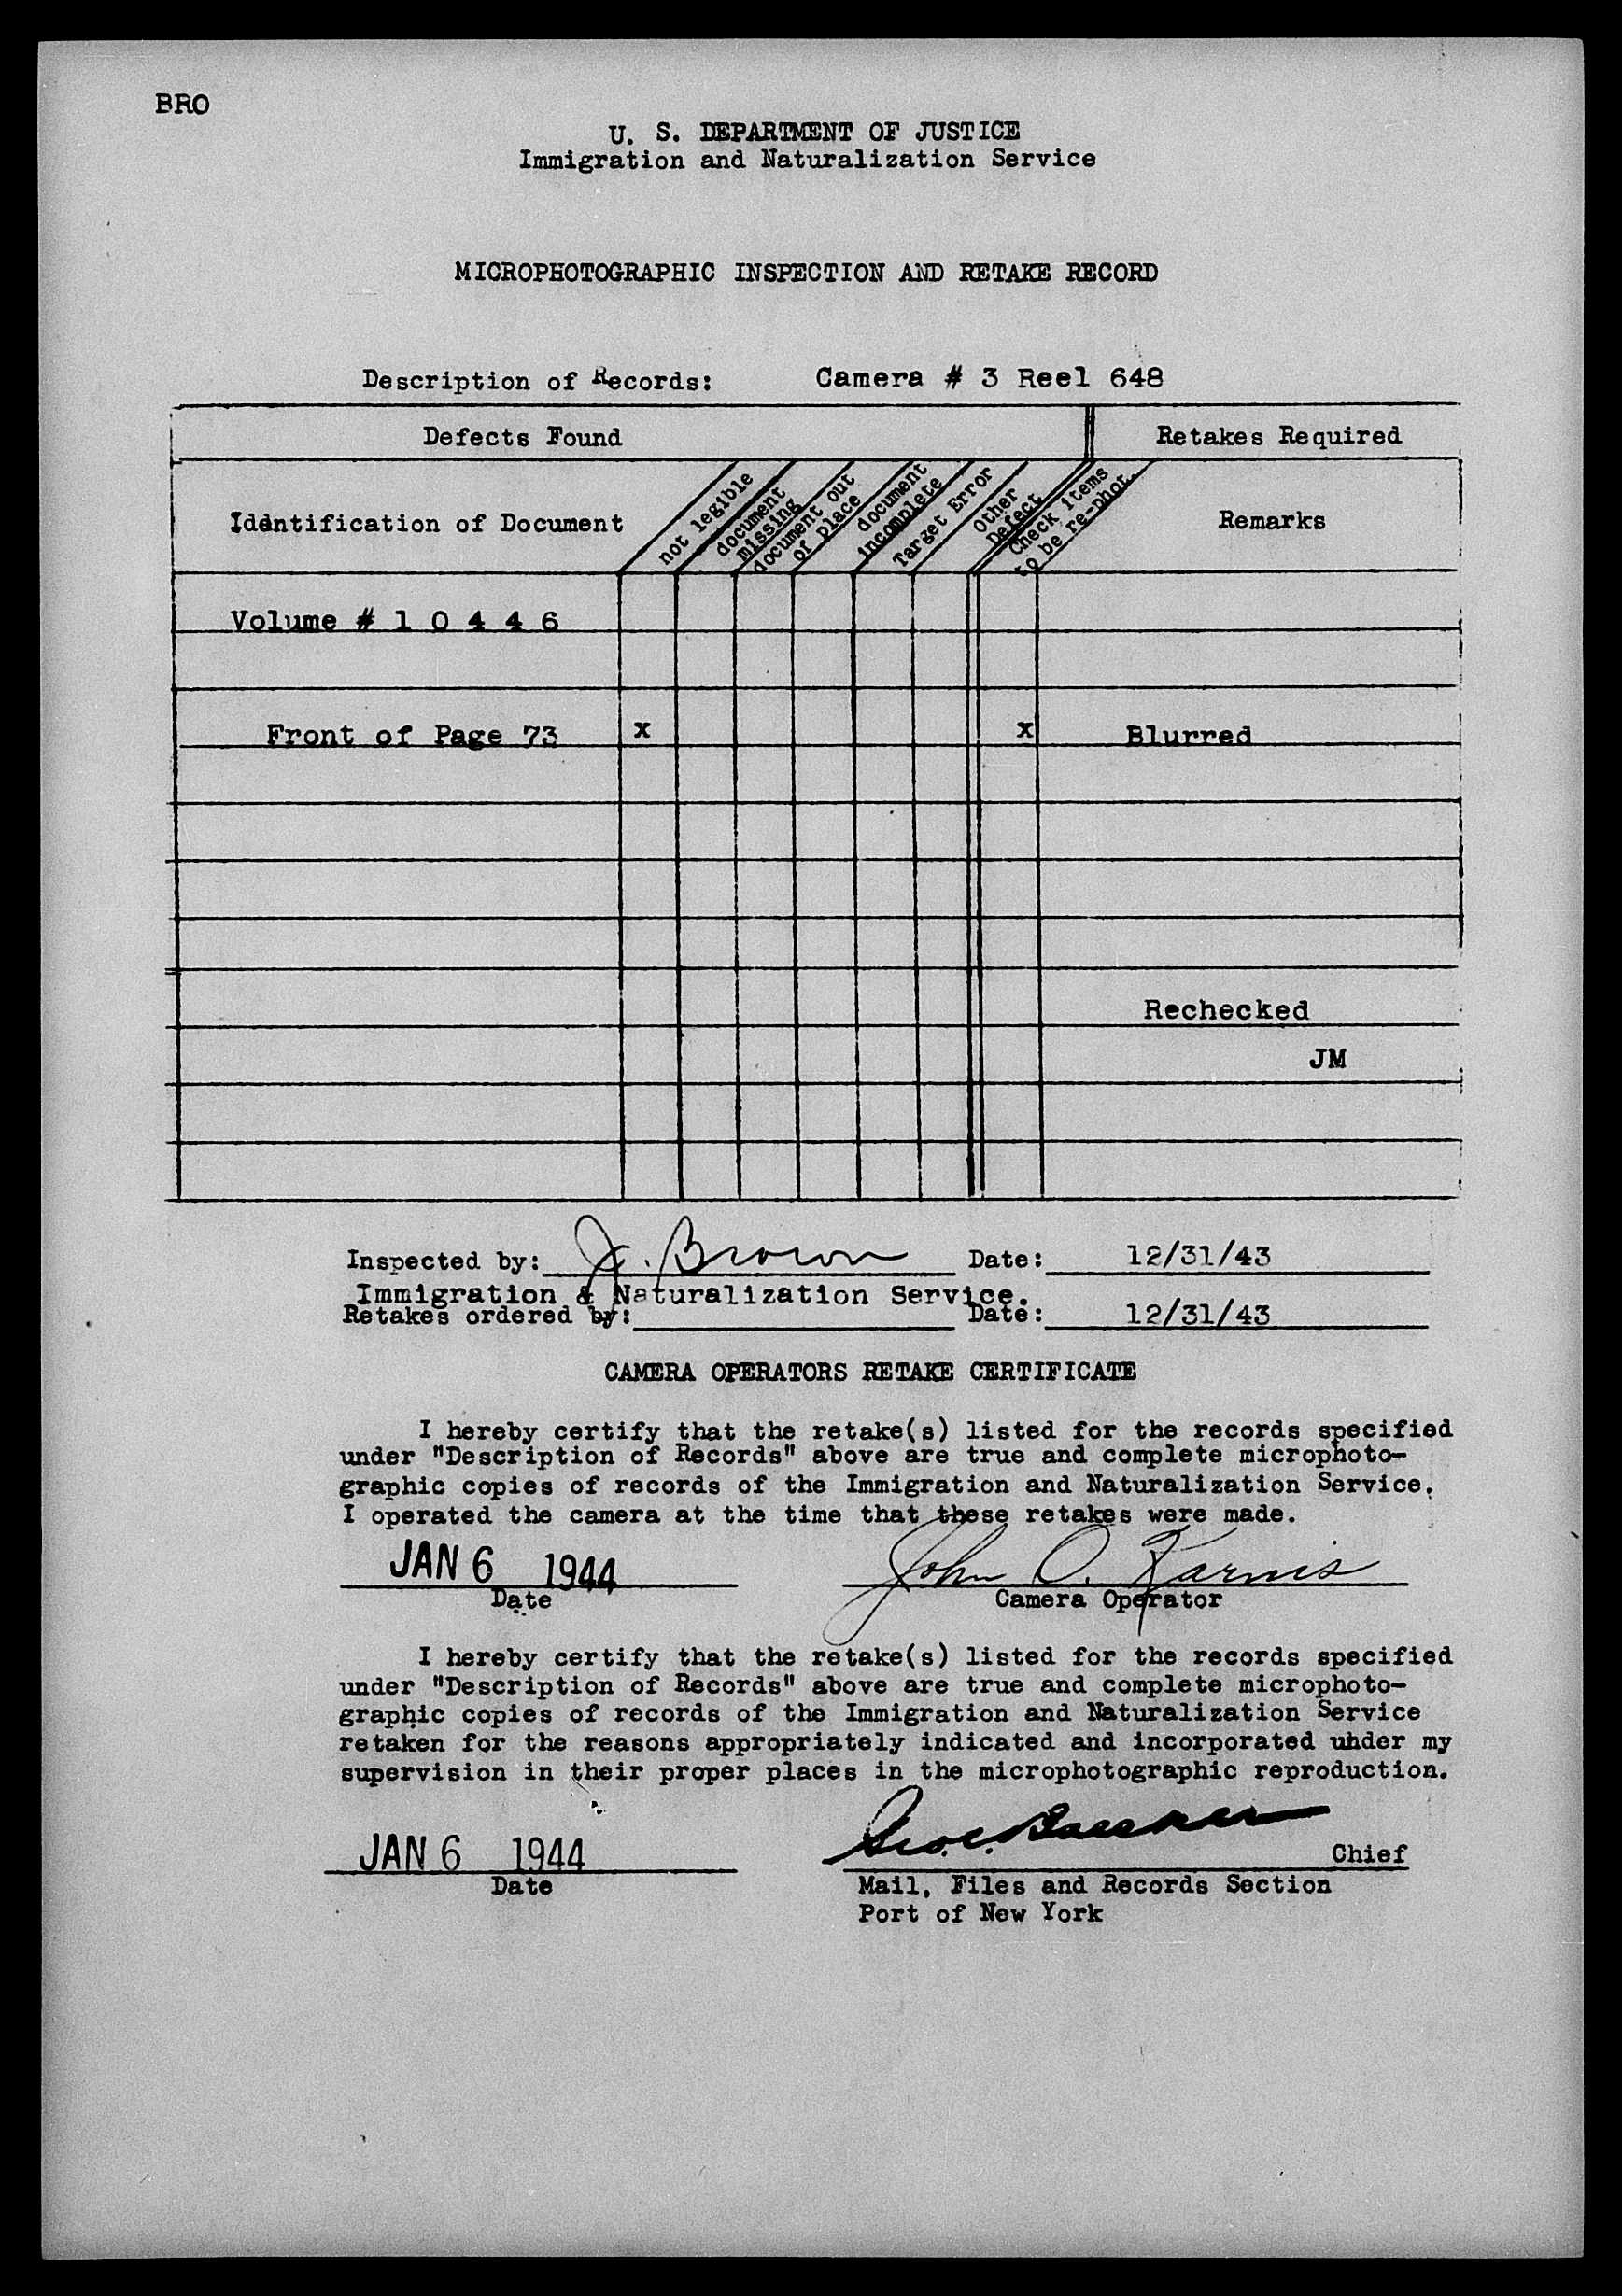 BRO
U. S. DEPARTMENT OF JUSTICE
Immigration and Naturalization Service
MICROPHOTOGRAPHIC INSPECTION AND RETAKE RECORD
Description of Records: Camera # 3 Reel 648
Defects Found Retakes Required
Identification of Document
not legible
document missing
document out of place
document incomplete
Target Error
Other Defect
Check items to be re-phot.
Remarks
Volume # 1 0 4 4 6
Front of Page 73 x x Blurred
Rechecked
JM
Inspected by: J. Brown Date: 12/31/43
Immigration & Naturalization Service.
Retakes ordered by: Date: 12/31/43
CAMERA OPERATORS RETAKE CERTIFICATE
I hereby certify that the retake(s) listed for the records specified
under "Description of Records" above are true and complete microphoto-
graphic copies of records of the Immigration and Naturalization Service.
I operated the camera at the time that these retakes were made.
JAN 6 1944 John O. Karnis
Date Camera Operator
I hereby certify that the retake(s) listed for the records specified
under "Description of Records" above are true and complete microphoto-
graphic copies of records of the Immigration and Naturalization Service
retaken for the reasons appropriately indicated and incorporated under my
supervision in their proper places in the microphotographic reproduction.
JAN 6 1944 Chief
Date Mail, Files and Records Section
Port of New York